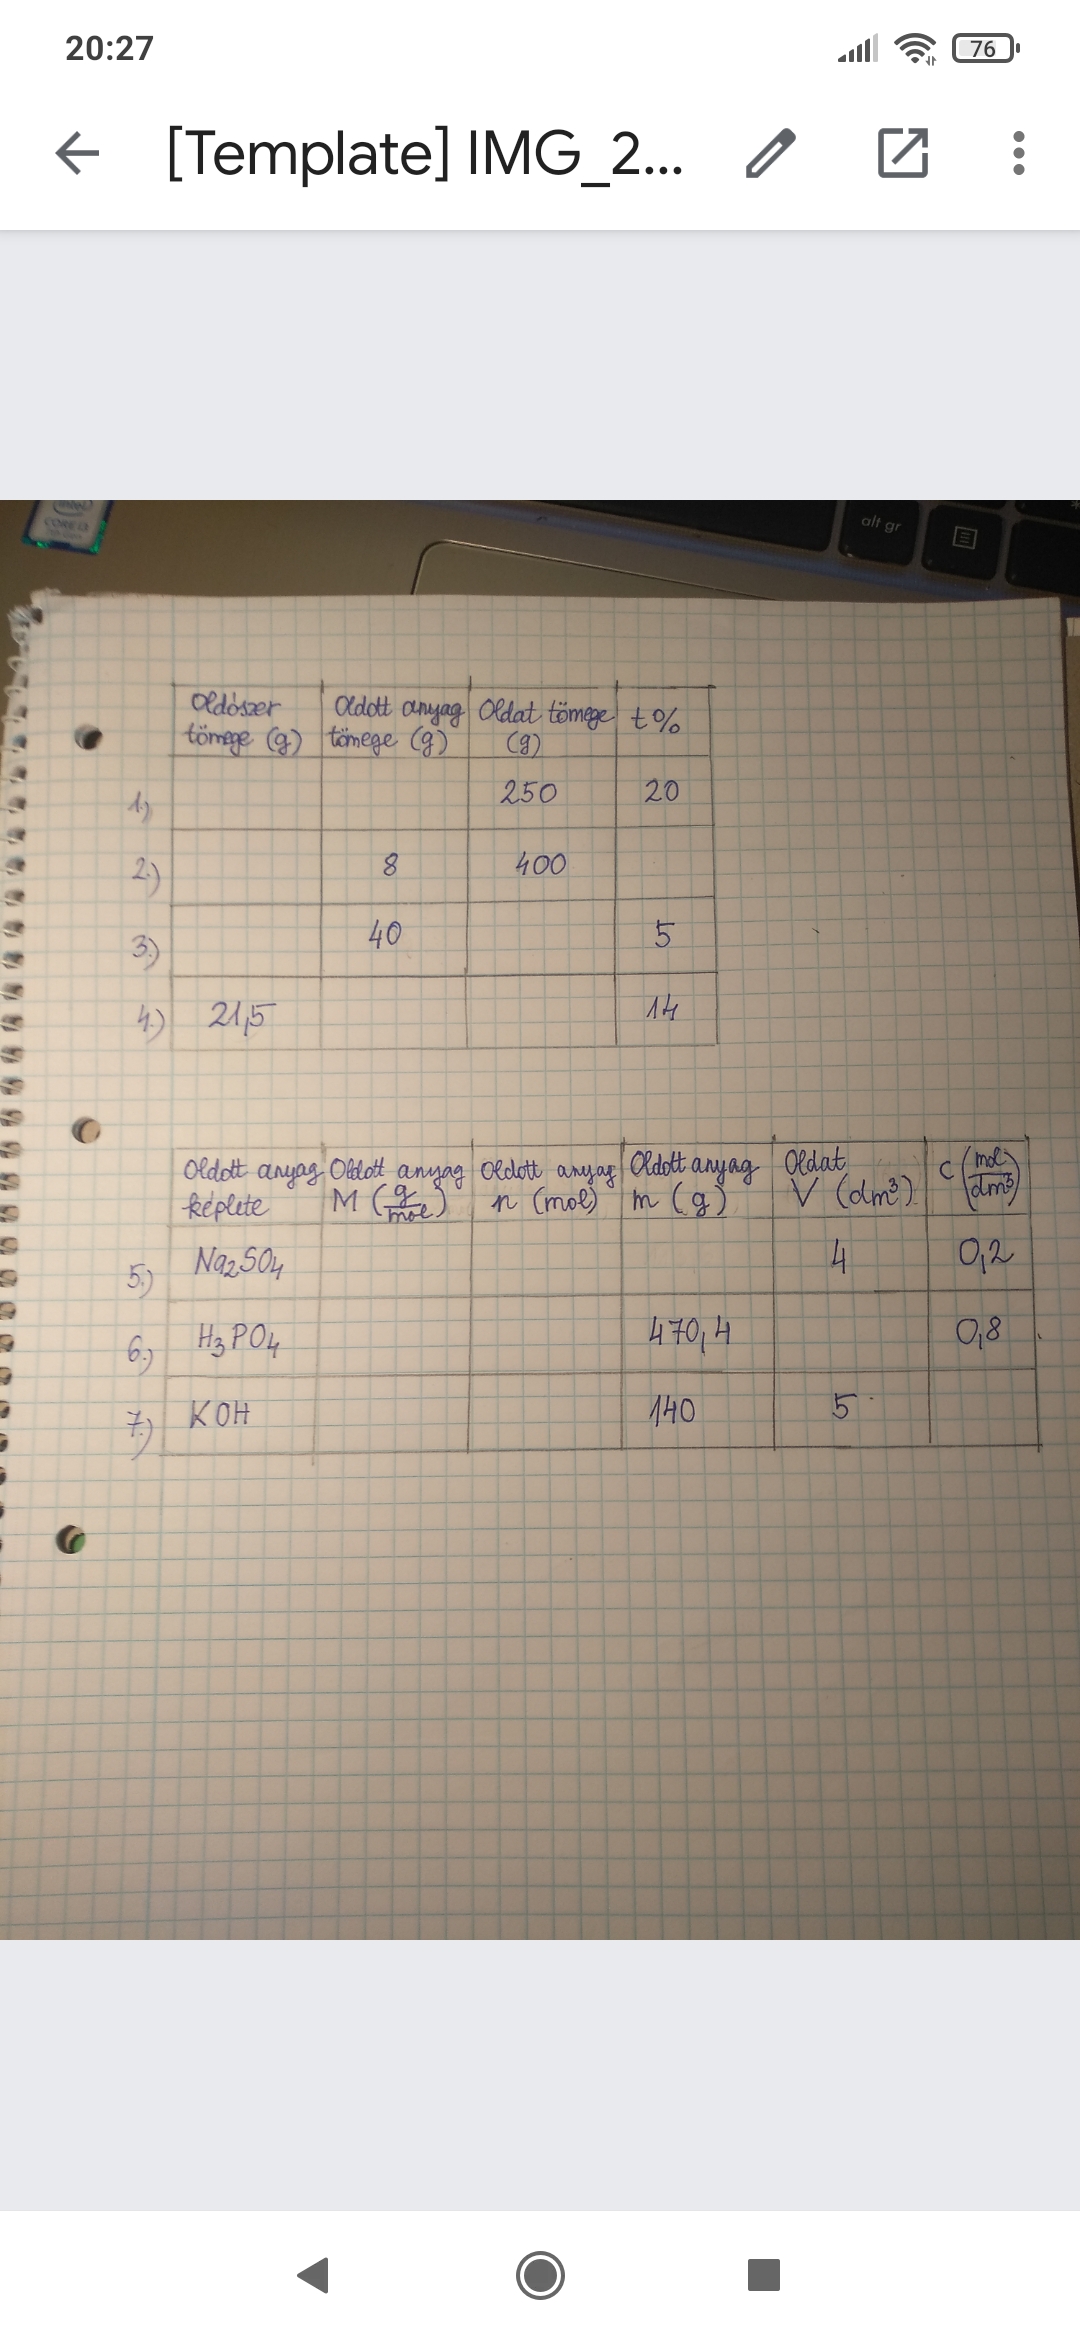 20:27
76
[Template] IMG_2...
intel
CORE i3
alt gr
Oldószer tömege (g) Oldott anyag tömege (g) Oldat tömege (g) t%
1.) 250 20
2.) 8 400
3.) 40 5
4.) 21,5 14
Oldott anyag képlete Oldott anyag M (g/mol) Oldott anyag n (mol) Oldott anyag m (g) Oldat V (dm³) C (mol/dm³)
5.) Na₂SO₄ 4 0,2
6.) H₃PO₄ 470,4 0,8
7.) KOH 140 5